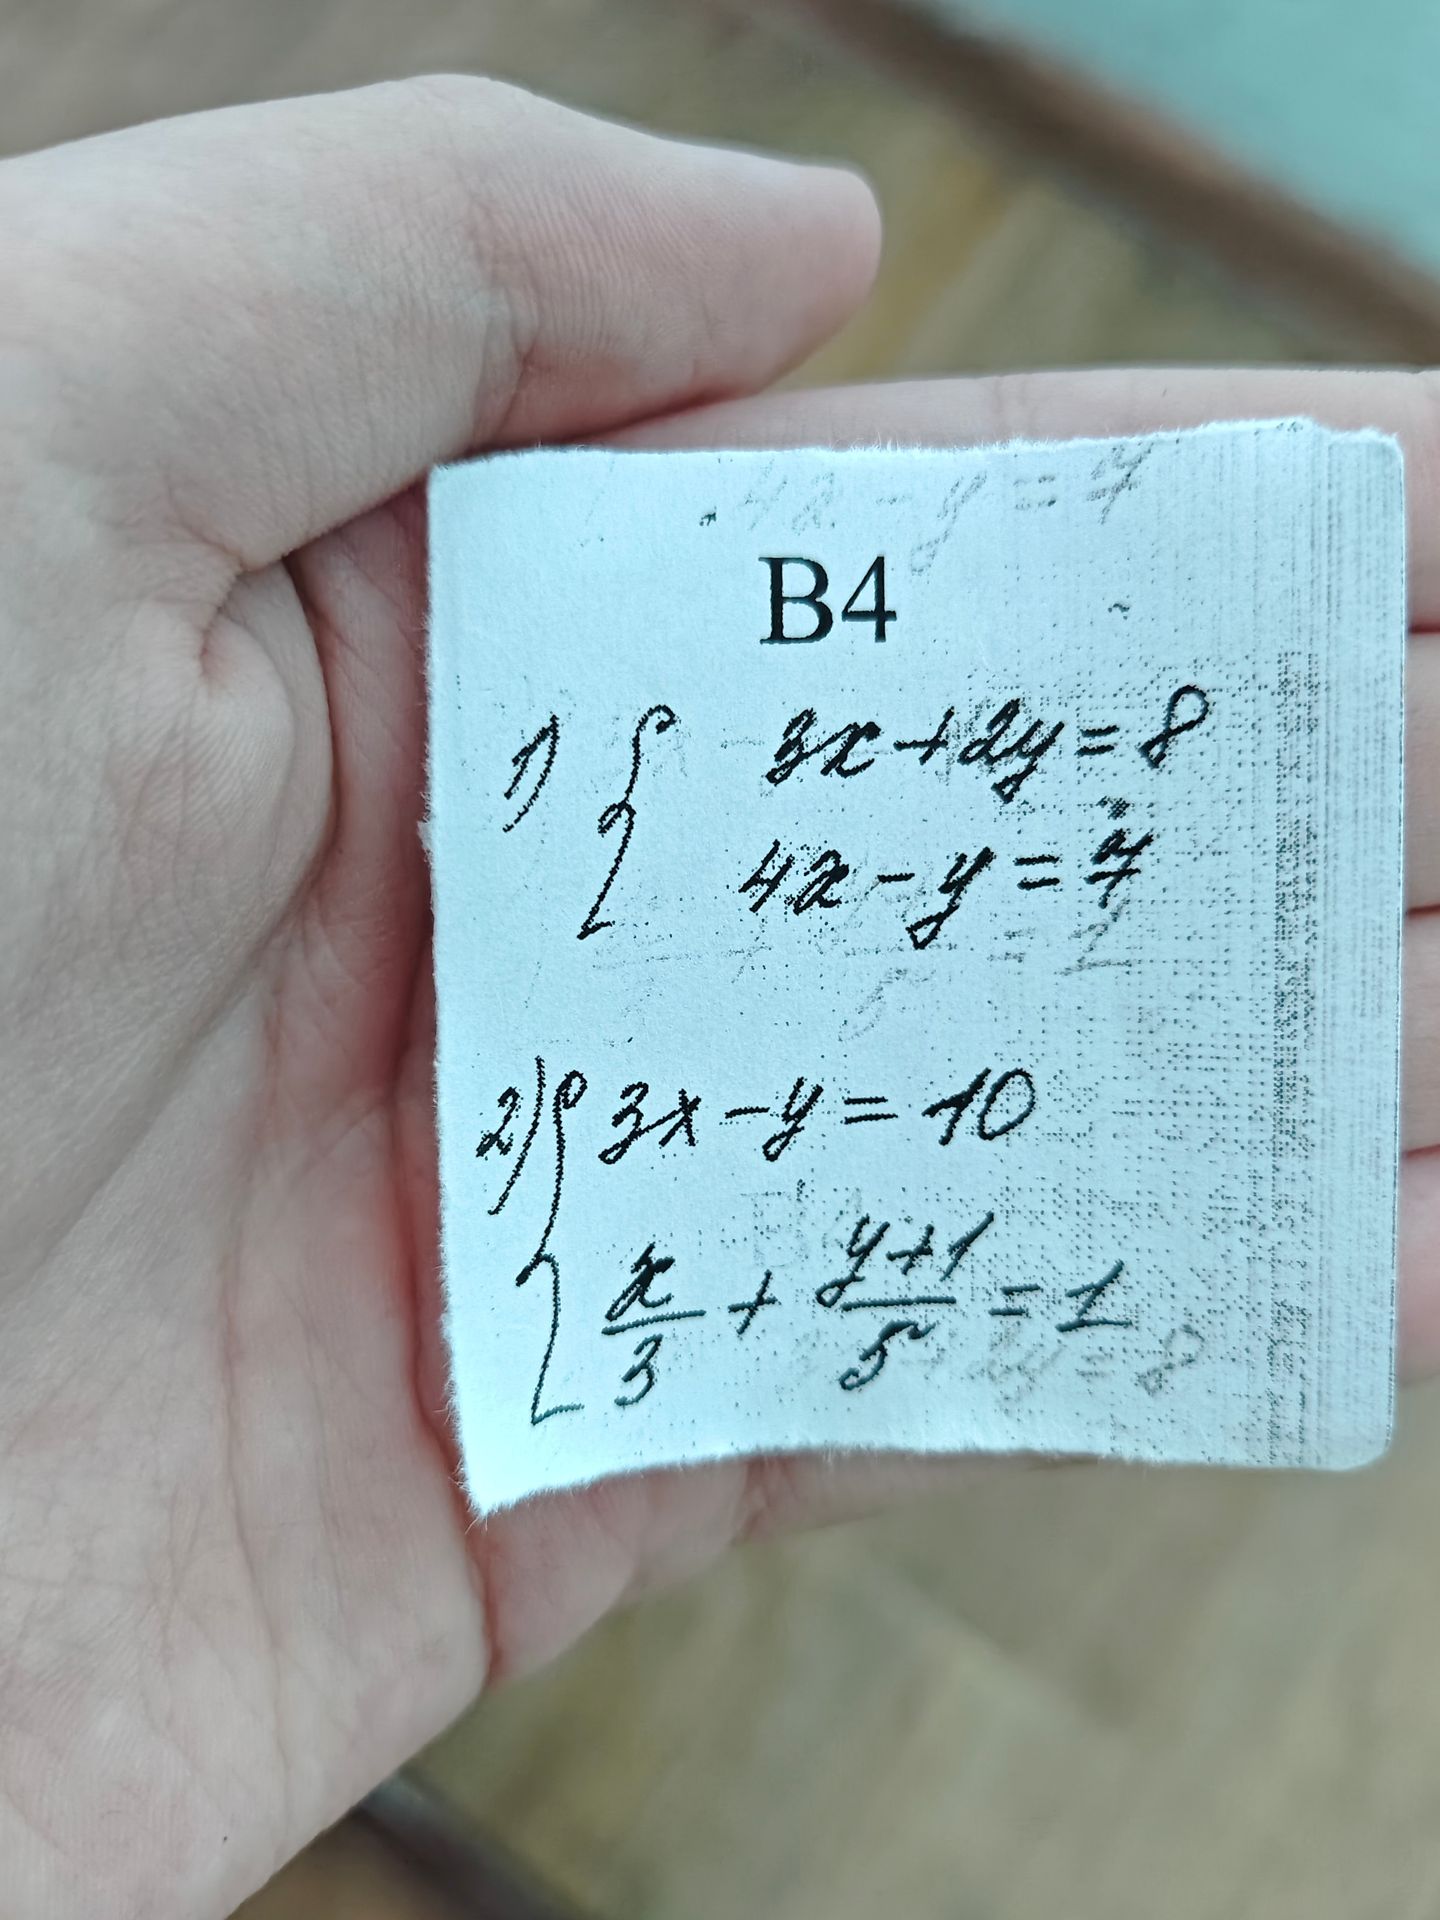 4x - y = 7
B4
1) { 3x + 2y = 8
4x - y = 7
2) { 3x - y = 10
x/3 + (y+1)/5 = 1